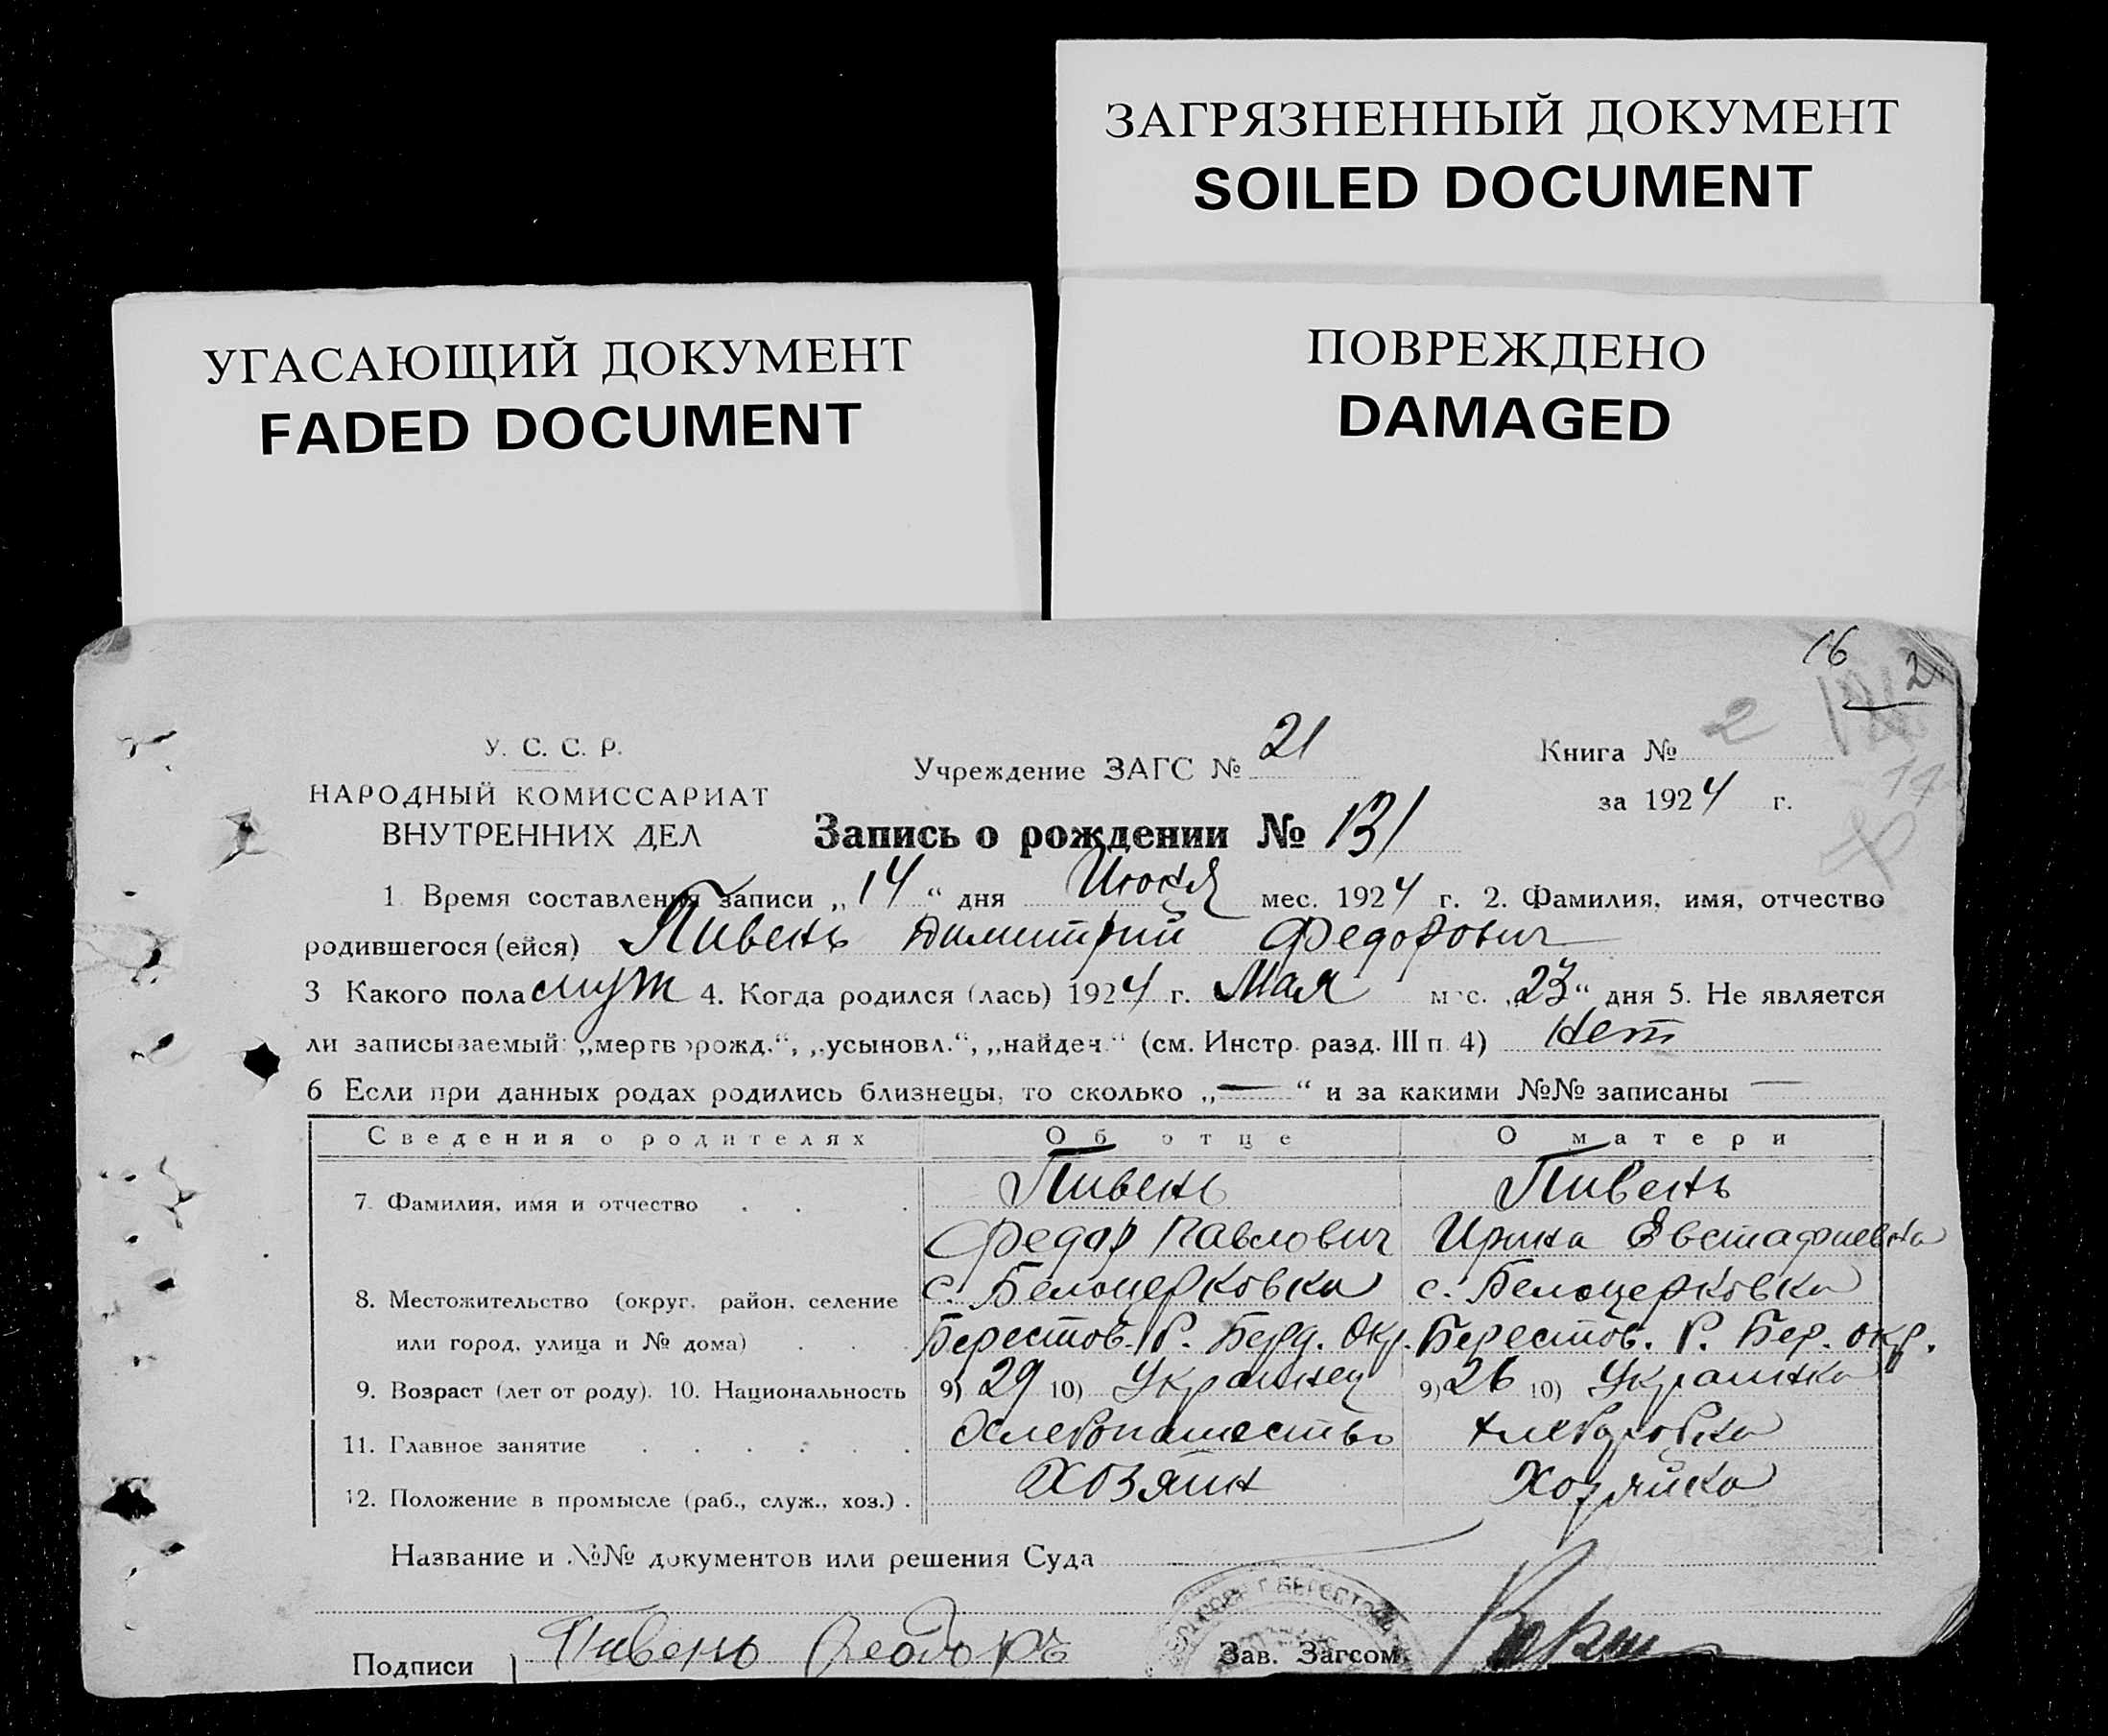 ЗАГРЯЗНЕННЫЙ ДОКУМЕНТ
SOILED DOCUMENT
УГАСАЮЩИЙ ДОКУМЕНТ
FADED DOCUMENT
ПОВРЕЖДЕНО
DAMAGED
16
2
У. С. С. Р.
НАРОДНЫЙ КОМИССАРИАТ
ВНУТРЕННИХ ДЕЛ
Учреждение ЗАГС № 21
Книга № 2
за 1924 г.
Запись о рождении № 131
1. Время составления записи „14“ дня Июня мес. 1924 г. 2. Фамилия, имя, отчество
родившегося (ейся) Пивень Димитрий Федорович
3 Какого пола муж 4. Когда родился (лась) 1924 г. Мая мес. „23“ дня 5. Не является
ли записываемый: „мертворожд.“, „усыновл.“, „найден.“ (см. Инстр. разд. III п. 4) Нет
6 Если при данных родах родились близнецы, то сколько „—“ и за какими №№ записаны —
Сведения о родителях Об отце О матери
7. Фамилия, имя и отчество Пивень Пивень
Федор Павлович Ирина Евстафиевна
8. Местожительство (округ, район, селение с. Белоцерковка с. Белоцерковка
или город, улица и № дома) Берестов. Р. Берд. Окр. Берестов. Р. Бер. окр.
9. Возраст (лет от роду). 10. Национальность 9) 29 10) Украинец 9) 26 10) Украинка
11. Главное занятие Хлебопашество
12. Положение в промысле (раб., служ., хоз.) Хозяин Хозяйка
Название и №№ документов или решения Суда
Подписи Пивень Феодоръ Зав. Загсом